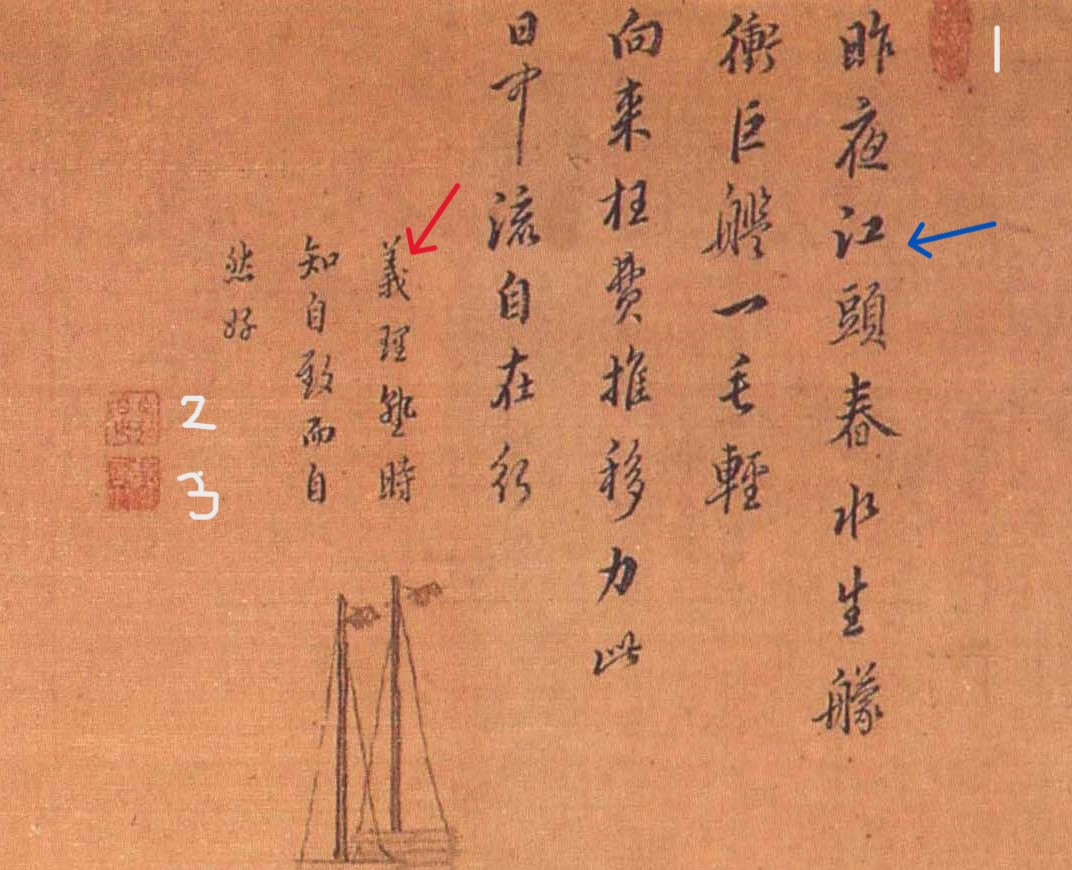 1
昨夜江頭春水生艨
衝巨艦一毛輕
向来枉費推移力此
日中流自在行
義理熟時
知自致而自
然好
2
3